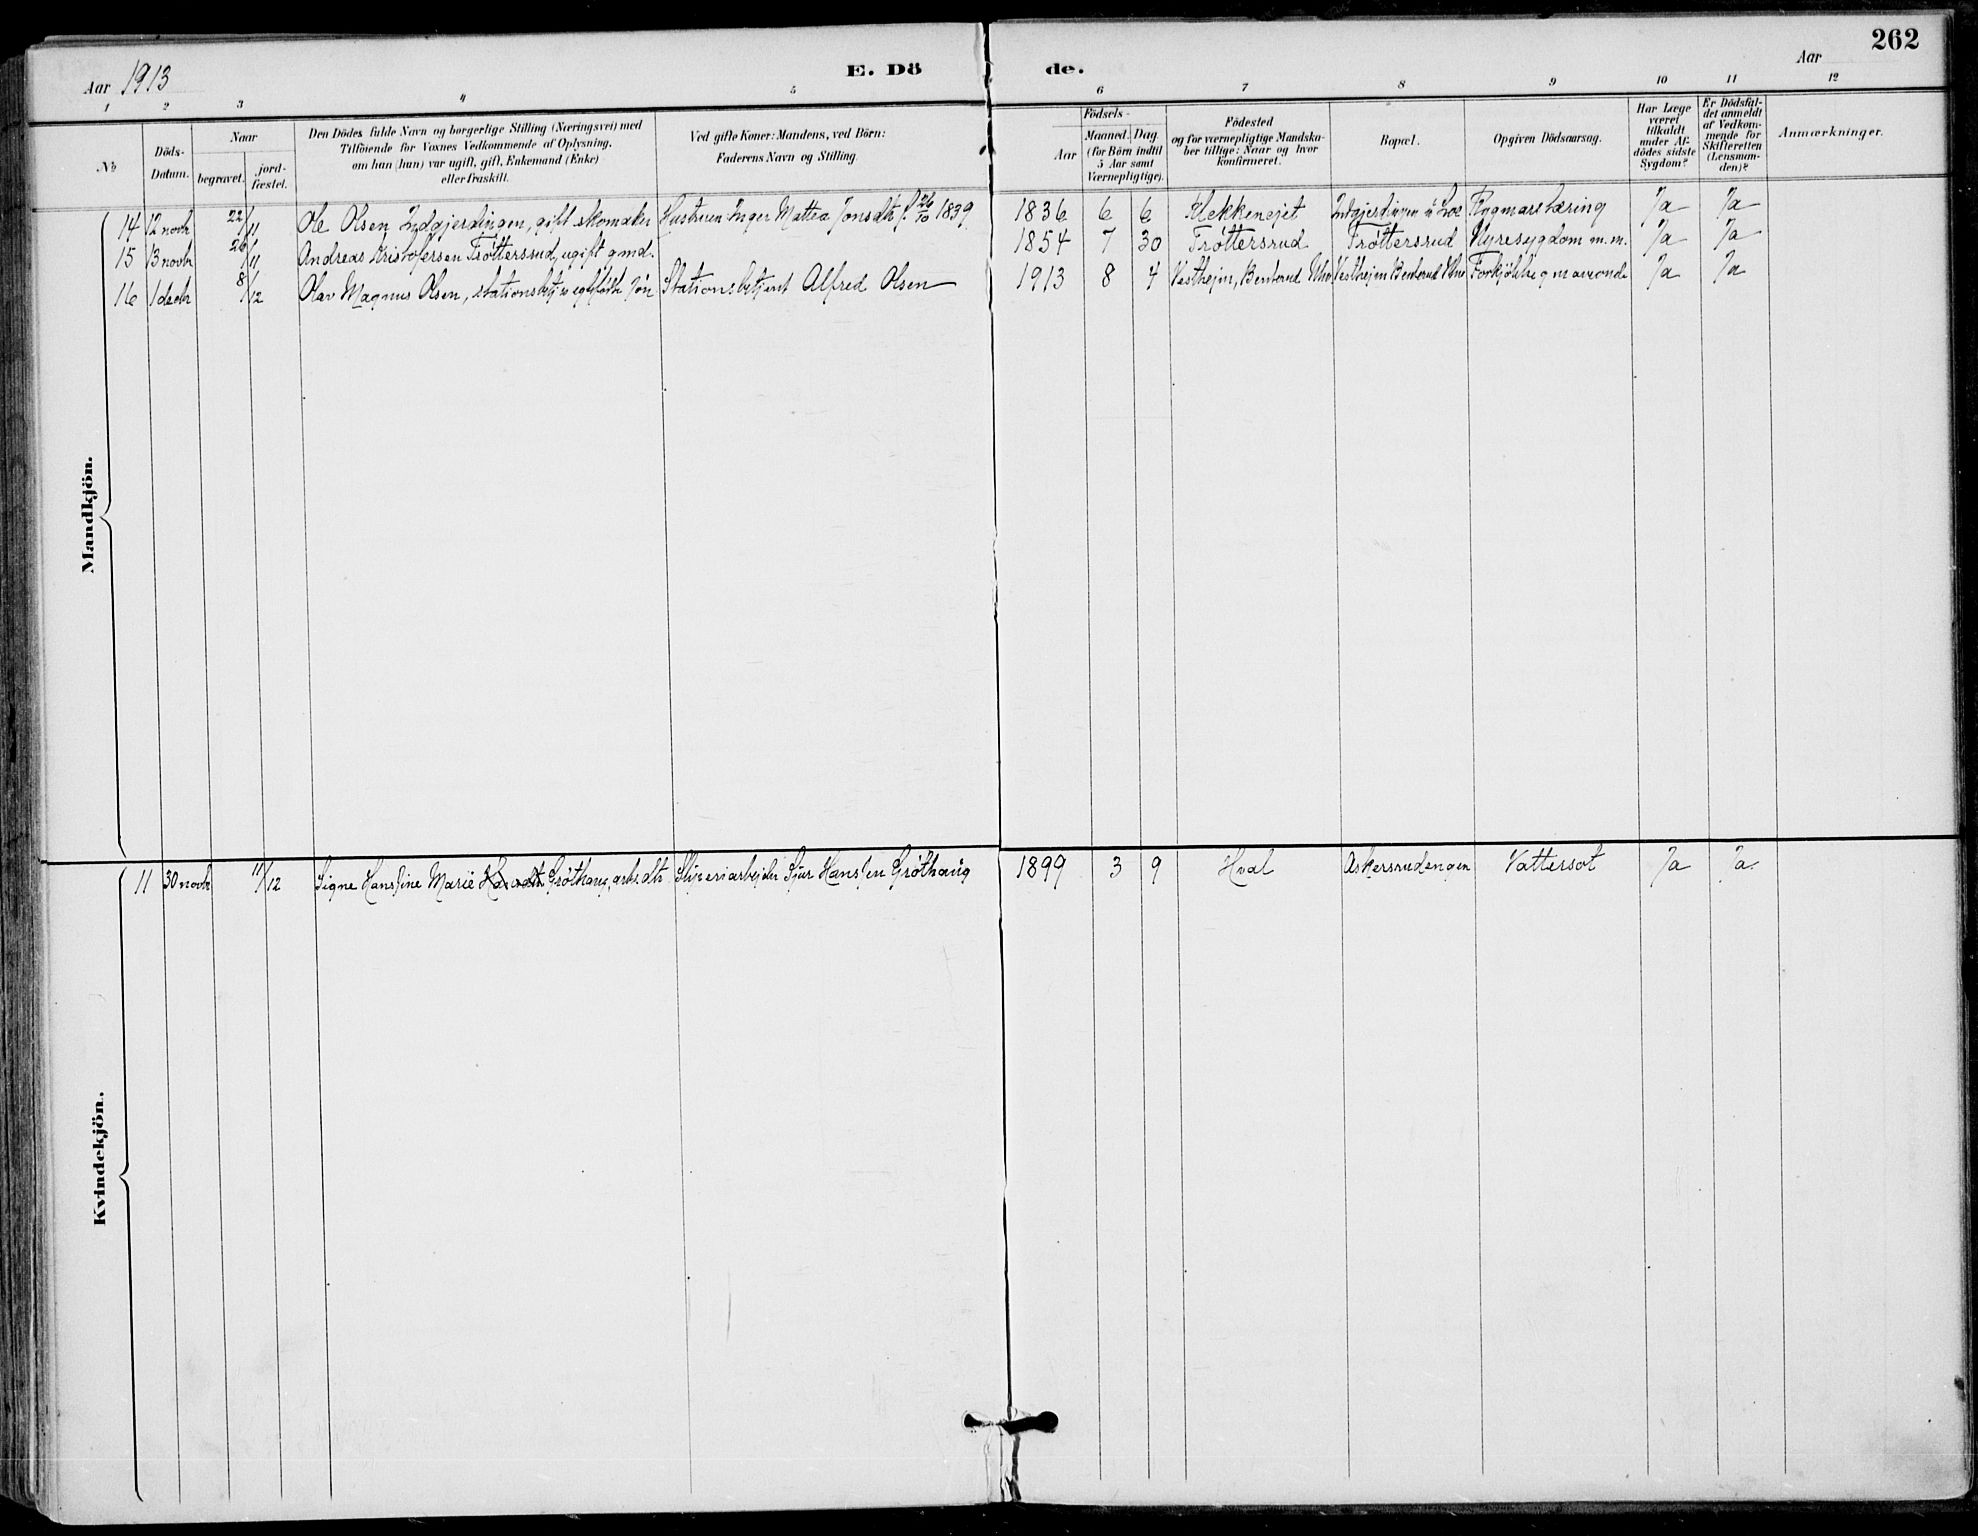 262
Aar 1913
E. Dö de.
Aar
1 2 3 4 5 6 7 8 9 10 11 12
No
Döds-Datum.
Naar
begravet.
jord-fæstet.
Den Dödes fulde Navn og borgerlige Stilling (Næringsvei) med
Tilföiende for Voxnes Vedkommende af Oplysning,
om han (hun) var ugift, gift, Enkemand (Enke)
eller fraskilt.
Ved gifte Koner: Mandens, ved Börn:
Faderens Navn og Stilling.
Födsels-
Aar
Maaned. Dag.
(for Börn indtil
5 Aar samt
Værnepligtige).
Födested
og for værnepligtige Mandska-
ber tillige: Naar og hvor
konfirmeret.
Bopæl.
Opgiven Dödsaarsag.
Har Læge
været
tilkaldt
under Af-
dödes sidste
Sygdom?
Er Dödsfal-
det anmeldt
af Vedkom-
mende for
Skifteretten
(Lensman-
den)?
Anmærkninger.
Mandkjön.
14 12 novbr 22/11 Ole Olsen Indgjerdingen, gift skomaker Hustruen Inger Mattea Jonsdtr f. 26/10 1839 1836 6 6 Klekkenejet Indgjerdingen Rygmarstæring Ja Ja
15 13 novbr 26/11 Andreas Kristofersen Trøttersrud, ugift gmd. 1854 7 30 Trøttersrud Trøttersrud Nyresygdom m.m. Ja Ja
16 1 decbr 8/12 Olav Magnus Olsen, stationsbetj.s egtefødte søn Stationsbetjent Alfred Olsen 1913 8 4 Vesthejm, Benterud Vesthejm Benterud Forkjølelse g maveonde Ja Ja
Kvindekjön.
11 30 novbr 11/12 Signe Hansine Marie Grøthaug, arb. dtr Sliperiarbejder Sjur Hansen Grøthaug 1899 3 9 Hval Askersrudengen Vattersot Ja Ja